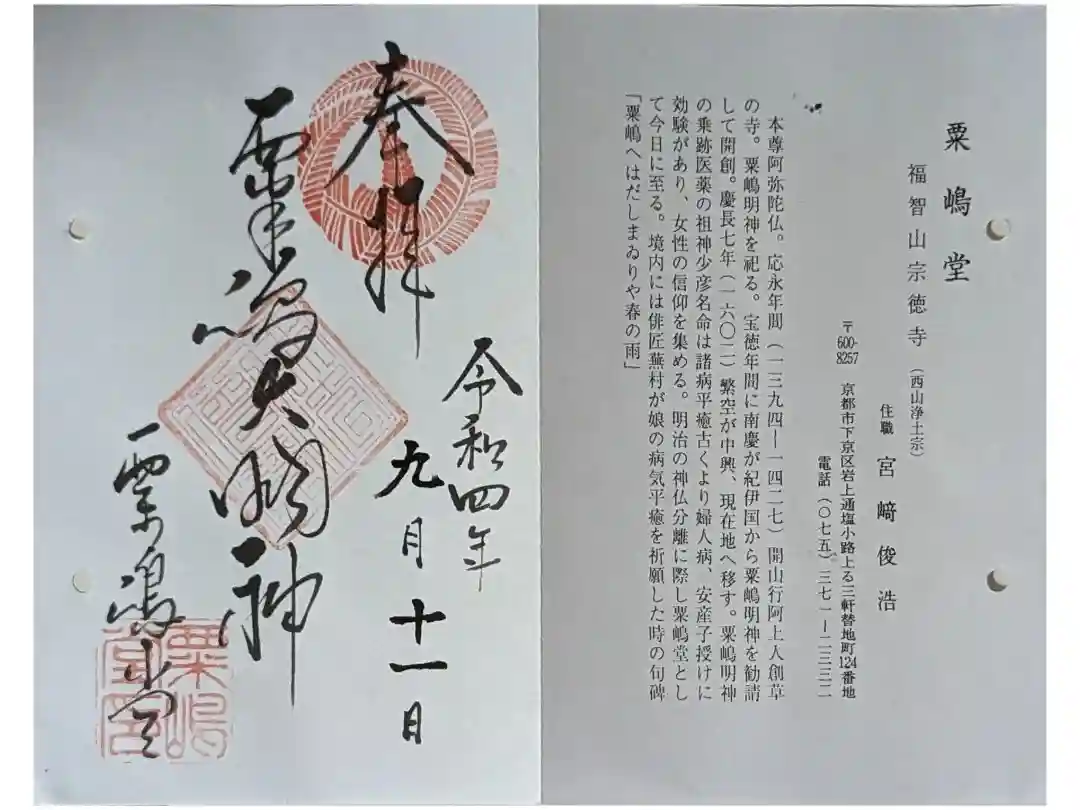 粟嶋堂
福智山宗徳寺（西山浄土宗）
住職 宮﨑俊浩
〒600-8257 京都市下京区岩上通塩小路上る三軒替地町124番地
電話（〇七五）三七一―二三三二
本尊阿弥陀仏。応永年間（一三九四―一四二七）開山行阿上人創草
の寺。粟嶋明神を祀る。宝徳年間に南慶が紀伊国から粟嶋明神を勧請
して開創。慶長七年（一六〇二）繁空が中興、現在地へ移す。粟嶋明神
の乗跡医薬の祖神少彦名命は諸病平癒古くより婦人病、安産子授けに
効験があり、女性の信仰を集める。明治の神仏分離に際し粟嶋堂とし
て今日に至る。境内には俳匠蕪村が娘の病気平癒を祈願した時の句碑
「粟嶋へはだしまゐりや春の雨」
奉拝
令和四年
九月十一日
粟嶋大明神
粟嶋堂
粟嶋
堂印